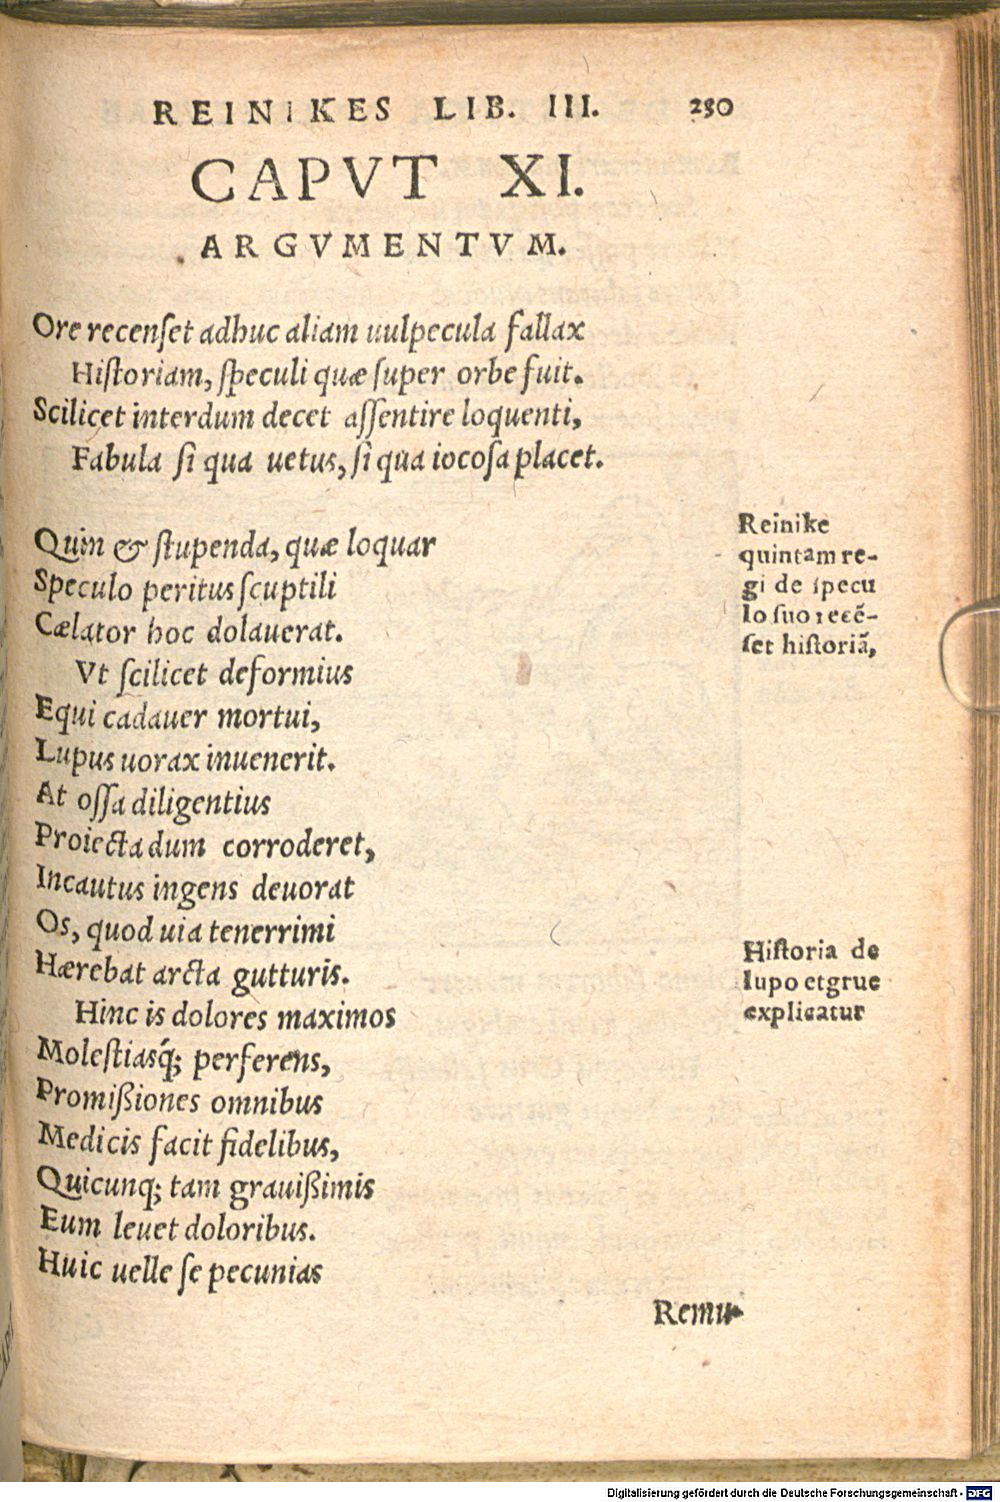 REINIKES LIB. III. 230
CAPVT XI.
ARGVMENTVM.
Ore recenſet adhuc aliam uulpecula fallax
Hiſtoriam, ſpeculi quæ ſuper orbe fuit.
Scilicet interdum decet aſſentire loquenti,
Fabula ſi qua uetus, ſi qua iocoſa placet.
Quin & ſtupenda, quæ loquar
Speculo peritus ſcuptili
Cælator hoc dolauerat.
Vt ſcilicet deformius
Equi cadauer mortui,
Lupus uorax inuenerit.
At oſſa diligentius
Proiecta dum corroderet,
Incautus ingens deuorat
Os, quod uia tenerrimi
Hærebat arcta gutturis.
Hinc is dolores maximos
Moleſtiasq́; perferens,
Promißiones omnibus
Medicis facit fidelibus,
Quicunq; tam grauißimis
Eum leuet doloribus.
Huic uelle ſe pecunias
Remu-
Reinike
quintam re-
gi de ſpecu
lo ſuo recẽ-
ſet hiſtoriã,
Hiſtoria de
lupo et grue
explicatur
Digitalisierung gefördert durch die Deutsche Forschungsgemeinschaft - DFG